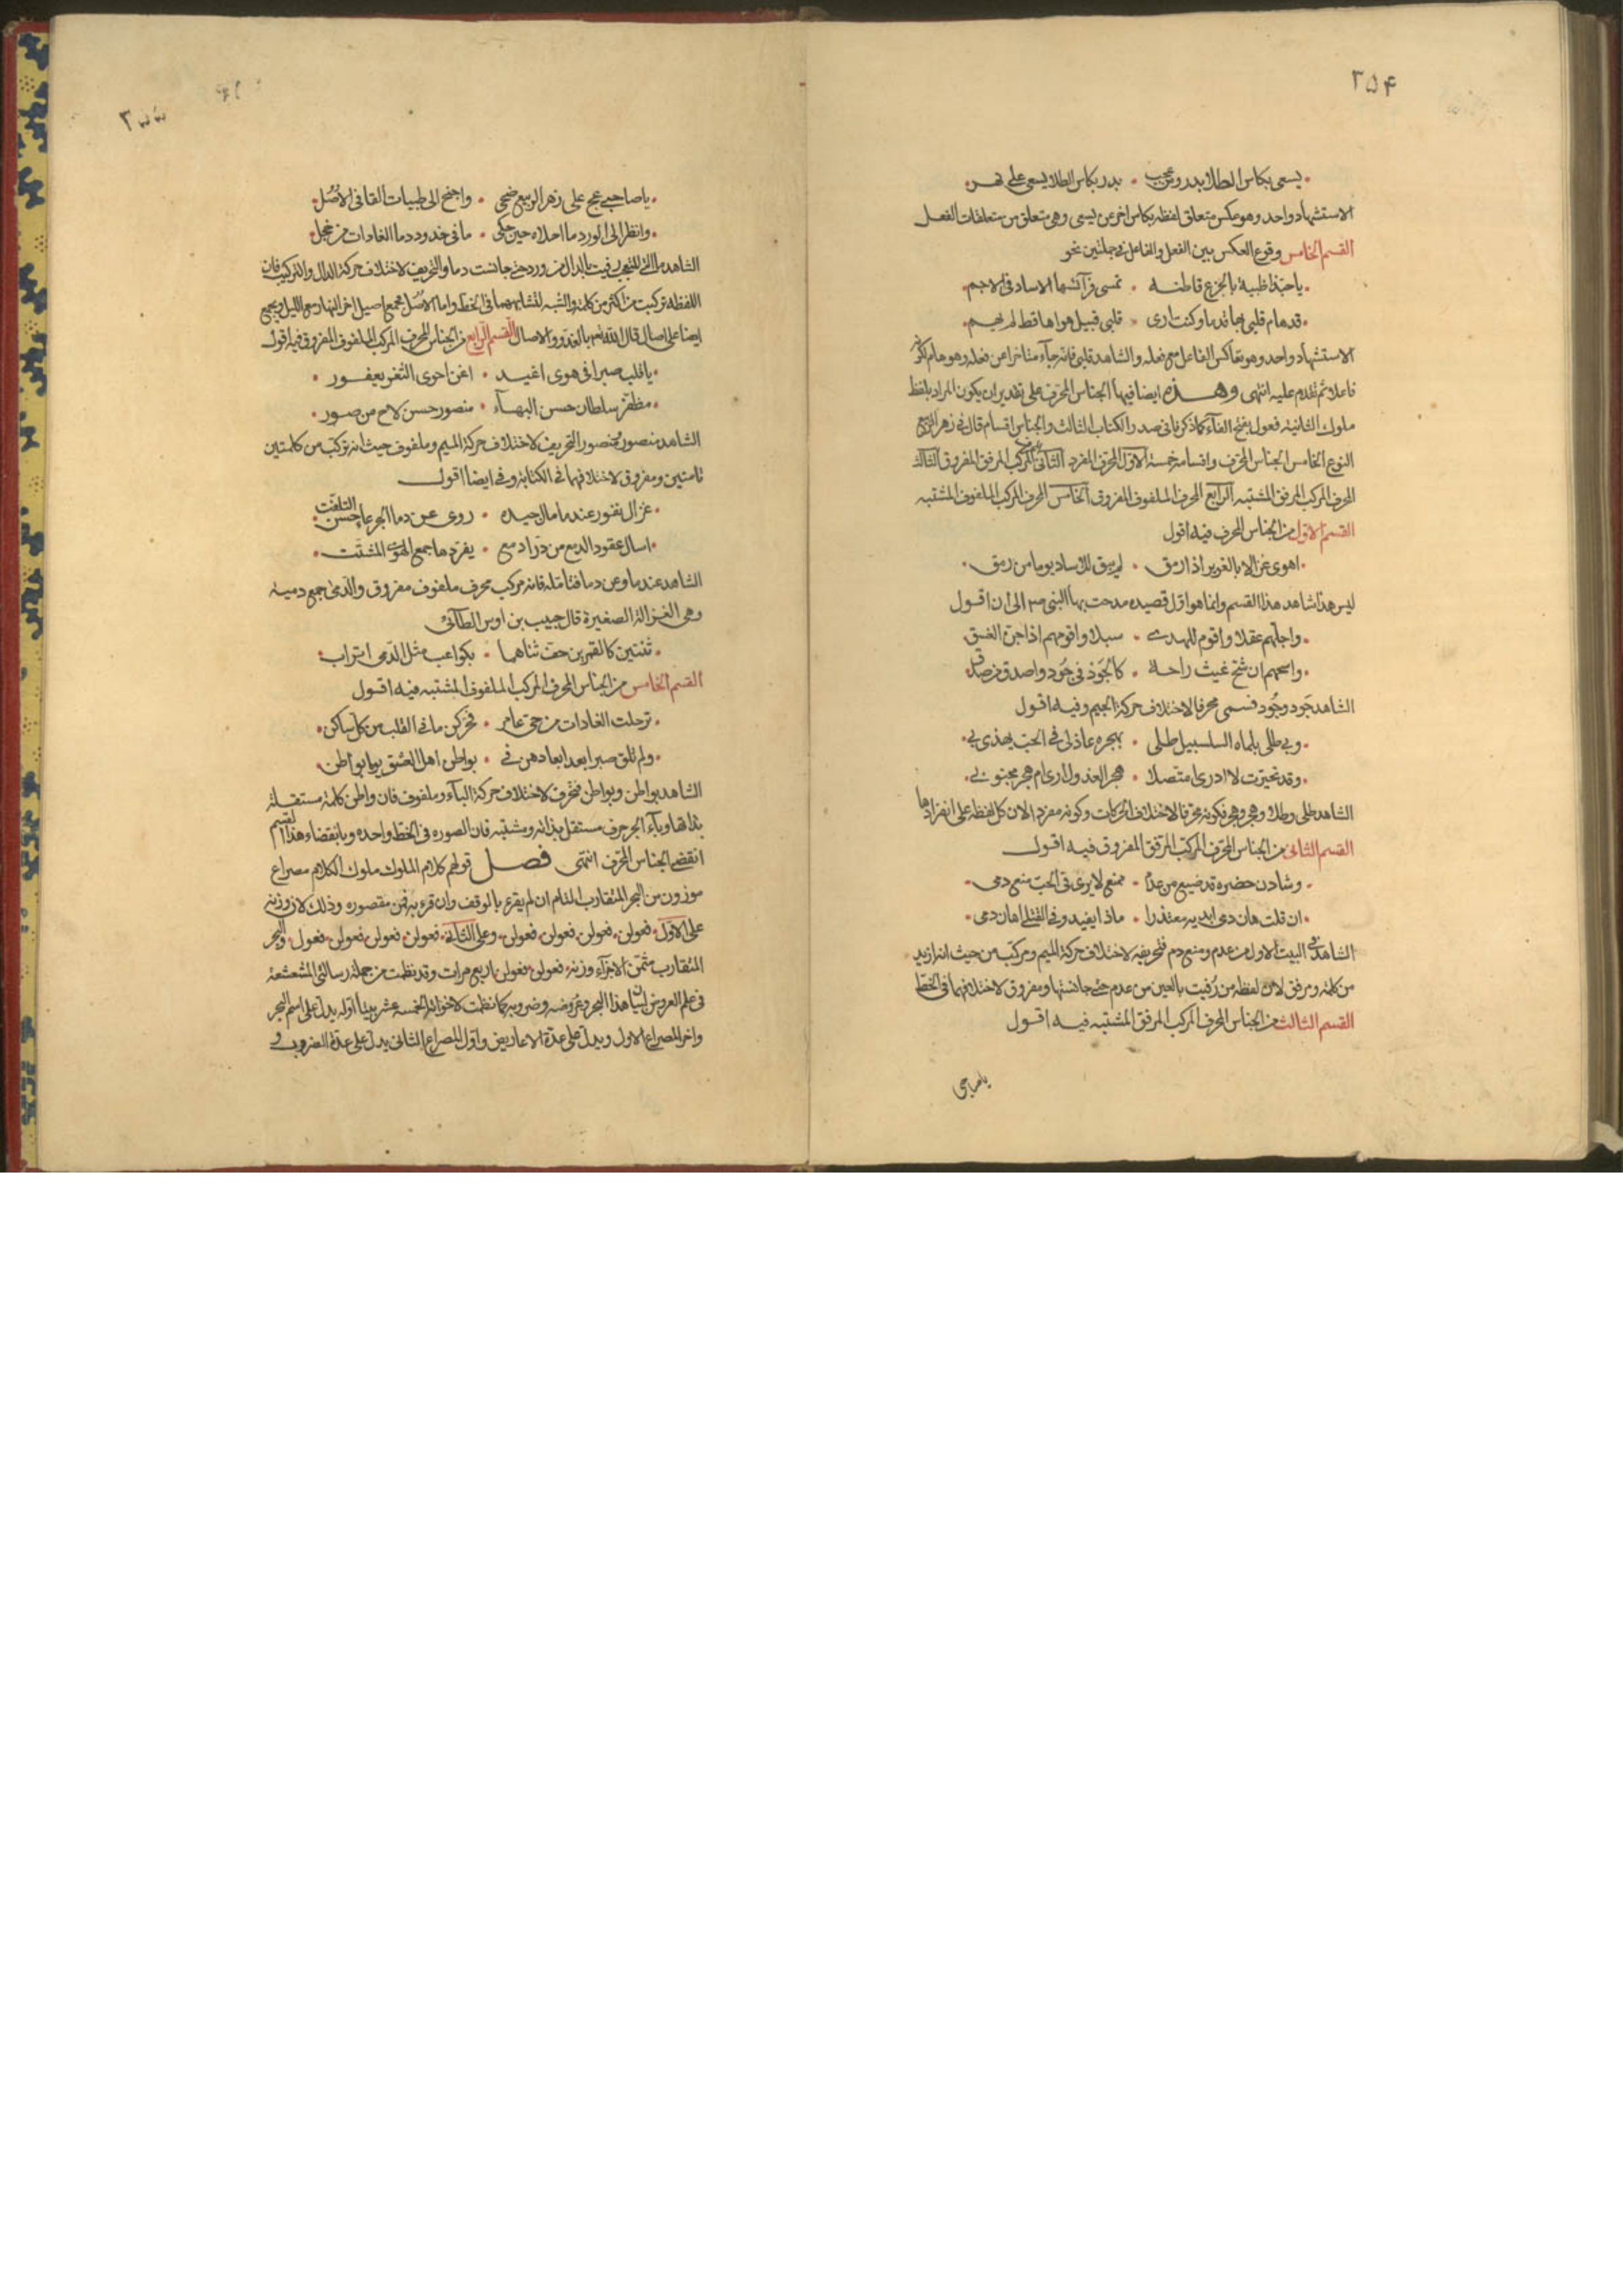 ٣٥۴
يسعى بكاس الطلا بدر وعن كثب • بدر بكاس الطلا يسعى على نهر
الاستشهاد واحد وهو عكس متعلق لفظه بكاس اخر عن يسعى وهى متعلق من متعلقات الفعل
القسم الخامس وقوع العكس بين الفعل والفاعل فى جملتين نحو
ياحبذا ظبية بالجزع قاطنه • تمسى فرآئسها الاساد فى الاجم
قد هام قلبى بها قدما وكنت ارى • قلبى قبيل هواها قط لم يهم
الاستشهاد واحد وهو تعاكس الفاعل مع فعله والشاهد قلبى فانه جآء متاخرا عن فعله وهو هام لكونه
فاعلا ثم تقدم عليه انتهى وهذه ايضا فيها الجناس المحرف على تقدير ان يكون المراد بلفظ
ملوك الثانية فعول بفتح الفآء كما ذكرنا فى صدر الكتاب الثالث والجناس اقسام قال فى زهر الربيع
النوع الخامس الجناس المحرف واقسامه خمسة الاول المحرف المفرد الثانى المحرف المركب المرفق المفروق الثالث
المحرف المركب المرفق المشتبه الرابع المحرف الملفوف المفروق الخامس المحرف المركب الملفوف المشتبه
القسم الاول من الجناس المحرف فيه اقول
اهوى غزالا بالغوير اذا رمق • لم يبق للاساد يوما من رمق
ليس هذا شاهد هذا القسم وانما هو اول قصيده مدحت بها النبى ص الى ان اقول
واجلهم عقلا واقوم للهدى • سبلا واقومهم اذا جن الغسق
واسحهم ان شح غيث راحة • كالجَود فى جُود واصدق من صدق
الشاهد جَود وجُود فسمى محرفا لاختلاف حركة الجيم وفيه اقول
وبى طلى بلماه السلسبيل طلى • بهجره عاذلى فى الحب يهذى بى
وقد تحيرت لا ادرى امتصلا • هجر العذول ارى ام هجر محبوبى
الشاهد طلى وطلا وهجر وهجر فكونه محرفا لاختلاف الحركات وكونه مفردا لان كل لفظه على انفرادها
القسم الثانى من الجناس المحرف المركب المرفق المفروق فيه اقول
وشادن حضره قد ضيع من عدم • ممنع لا يرى فى الحب منع دمى
ان قلت هان دمى ابديه معتذرا • ماذا يفيد وفى القتلى اهان دمى
الشاهد فى البيت الاول من عدم ومنع دم فتحريفه لاختلاف حركة الميم ومركب من حيث انه ازيد
من كلمة ومرفق لان لفظه من رُفيت بالعين من عدم حتى جانستها ومفروق لاختلافهما فى الخط
القسم الثالث من الجناس المحرف المركب المرفق المشتبه فيه اقول
ياصاحبى
٣٥٥
ياصاحبى عج على زهر الربيع ضحى • واجنح الى طيبات القا فى الاصُل
وانظر الى الورد ما احلاه حين حكى • مافى خدود دما الغادات من خجل
الشاهد ما التى للتعجب رفيت بالدال من ورد حتى جانست دما والتحريف لاختلاف حركة الدال والتركيب فان
اللفظه تركبت من اكثر من كلمة والشبه لتشابههما فى الخط واما الاصُل فجمع اصيل اخر النهار مع الليل ويجمع
ايضا على اصال قال الله تعم بالغدو والاصال القسم الرابع من الجناس المحرف المركب الملفوف المفروق فيه اقول
ياقلب صبرا فى هوى اغيد • اغن احوى الثغر يعفور
مظفر سلطان حسن البهآء • منصور حسن لاح من صور
الشاهد منصور ومن صور التحريف لاختلاف حركة الميم وملفوف حيث انه تركب من كلمتين
تامتين ومفروق لاختلافهما فى الكتابة وفيه ايضا اقول
غزال نفور عندما مال جيده • روى عن دما الجرعا حسن التلفت
اسال عقود الدمع من در ادمع • يفردها جمع الهوى المشتت
الشاهد عندما وعن دما فتامله فانه مركب محرف ملفوف مفروق والدمى جمع دمية
وهى الغزالة الصغيرة قال حبيب بن اوس الطآئى
ثنتين كالقمرين حف ثناهما • بكواعب مثل الدمى اتراب
القسم الخامس من الجناس المحرف المركب الملفوف المشتبه فيه اقول
ترحلت الغادات من حى عامر • فحركن مافى القلب من كل ساكن
ولم نلق صبرا بعد ابعادهن فى • بواطن اهل العشق يوما بواطن
الشاهد بواطن وبواطن فحرف لاختلاف حركة البآء وملفوف فان واطن كلمة مستقلة
بذاتها وبآء الجر حرف مستقل بذاته ومشتبه فان الصوره فى الخط واحده وبانقضاء هذا القسم
انقضى الجناس المحرف انتهى فصل قولهم كلام الملوك ملوك الكلام مصراع
موزون من البحر المتقارب التام ان لم يقرء بالوقف وان قرء به فمن مقصوره وذلك لان وزنه
على الاول فعولن فعولن فعولن فعولن وعلى الثانى فعولن فعولن فعولن فعول والبحر
المتقارب مثمن الاجزآء وزنه فعولن فعولن اربع مرات وقد نظمت من جملة رسالتى المشعشعة
فى علم العروض لبيان هذا البحر وعروضه وضروبه كما نظمت لاخواته الخمسة عشر بيتا اوله يدل على اسم البحر
واخر المصراع الاول ويدل على عدة الاعاريض واول المصراع الثانى يدل على عدة الضروب فى